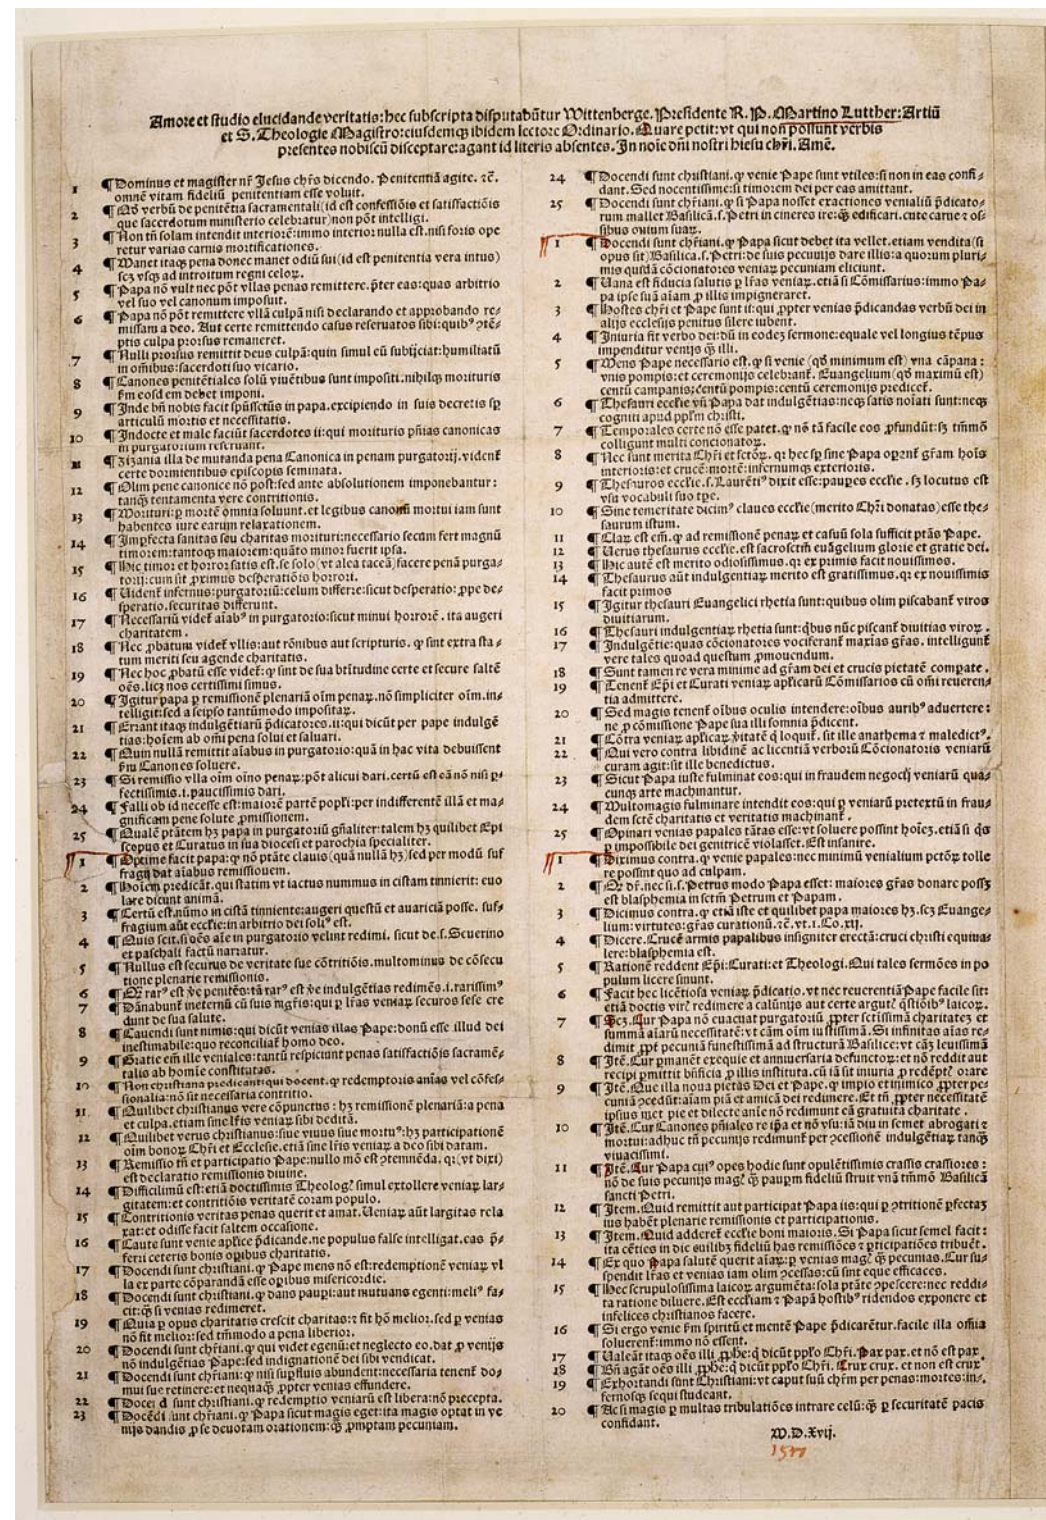 Amore et studio elucidande veritatis: hec subscripta disputabũtur Wittenberge. Presidente R. P. Martino Lutther: Artiũ
et S. Theologie Magistro: eiusdemqꝫ ibidem lectore Ordinario. Quare petit: vt qui non possunt verbis
presentes nobiscũ disceptare: agant id literis absentes. In noĩe dñi nostri hiesu chr̃i. Amẽ.
1 ¶ Dominus et magister nr̃ Jesus chr̃s dicendo. Penitentiã agite. ⁊c̃.
omnẽ vitam fideliũ penitentiam esse voluit.
2 ¶ Qđ verbũ de penitẽtia sacramentali (id est confessiõis et satisfactiõis
que sacerdotum ministerio celebratur) non põt intelligi.
3 ¶ Non tñ solam intendit interiorẽ: immo interior nulla est. nisi foris ope
retur varias carnis mortificationes.
4 ¶ Manet itaqꝫ pena donec manet odiũ sui (id est penitentia vera intus)
scꝫ vsqꝫ ad introitum regni celoꝝ.
5 ¶ Papa nõ vult nec põt vllas penas remittere. p̃ter eas: quas arbitrio
vel suo vel canonum imposuit.
6 ¶ Papa nõ põt remittere vllã culpã nisi declarando et approbando re-
missam a deo. Aut certe remittendo casus reseruatos sibi: quibꝰ ꝯtẽ-
ptis culpa prorsus remaneret.
7 ¶ Nulli prorsus remittit deus culpã: quin simul eũ subijciat: humiliatũ
in om̃ibus: sacerdoti suo vicario.
8 ¶ Canones penitẽtiales solũ viuẽtibus sunt impositi. nihilqꝫ morituris
ẜm eosdem debet imponi.
9 ¶ Inde bñ nobis facit spũssctũs in papa. excipiendo in suis decretis sꝑ
articulũ mortis et necessitatis.
10 ¶ Indocte et male faciũt sacerdotes ii: qui morituris pñias canonicas
in purgatorium reseruant.
11 ¶ Zizania illa de mutanda pena Canonica in penam purgatorij. vident̃
certe dormientibus episcopis seminata.
12 ¶ Olim pene canonice nõ post: sed ante absolutionem imponebantur:
tanqꝫ tentamenta vere contritionis.
13 ¶ Morituri: ꝑ mortẽ omnia soluunt. et legibus canonũ mortui iam sunt
habentes iure earum relaxationem.
14 ¶ Imperfecta sanitas seu charitas morituri: necessario secum fert magnũ
timorem: tantoqꝫ maiorem: quãto minor fuerit ipsa.
15 ¶ Hic timor et horror satis est. se solo (vt alia taceã) facere penã purga-
torij: cum sit ꝓximus desperatiõis horrori.
16 ¶ Videnť infernus: purgatoriũ: celum differre: sicut desperatio: ꝓpe de-
speratio. securitas differunt.
17 ¶ Necessariũ videť aĩabꝰ in purgatorio: sicut minui horrorẽ. ita augeri
charitatem.
18 ¶ Nec ꝓbatum videť vllis: aut rõnibus aut scripturis. ꝙ sint extra sta-
tum meriti seu agende charitatis.
19 ¶ Nec hoc ꝓbatũ esse videť: ꝙ sint de sua btĩtudine certe et secure saltẽ
oẽs. licꝫ nos certissimi simus.
20 ¶ Igitur papa ꝑ remissionẽ plenariã oĩm penaꝝ. nõ simpliciter oĩm. in-
telligit: sed a seipso tantũmodo impositaꝝ.
21 ¶ Errant itaqꝫ indulgẽtiarũ p̃dicatores. ii: qui dicũt per pape indulgẽ
tias: hoĩem ab om̃i pena solui et saluari.
22 ¶ Quin nullã remittit aĩabus in purgatorio: quã in hac vita debuissent
ẜm Canones soluere.
23 ¶ Si remissio vlla oĩm oĩno penaꝝ: põt alicui dari. certũ est eã nõ nisi ꝑ-
fectissimis. i. paucissimis dari.
24 ¶ Falli ob id necesse est: maiorẽ partẽ popłi: per indifferentẽ illã et ma-
gnificam pene solute ꝓmissionem.
25 ¶ Qualẽ ptãtem hꝫ papa in purgatoriũ gñaliter: talem hꝫ quilibet Epi
scopus et Curatus in sua diocesi et parochia specialiter.
1 ¶ Optime facit papa: ꝙ nõ ptãte clauis (quã nullã hꝫ) sed per modũ suf
fragij dat aĩabus remissionem.
2 ¶ Hoĩem predicãt. qui statim vt iactus nummus in cistam tinnierit: euo
lare dicunt animã.
3 ¶ Certũ est. nũmo in cistã tinniente: augeri questũ et auariciã posse. suf-
fragium aũt eccłie: in arbitrio dei soliꝰ est.
4 ¶ Quis scit. si oẽs aĩe in purgatorio velint redimi. sicut de. s. Seuerino
et paschali factũ narratur.
5 ¶ Nullus est securus de veritate sue cõtritiõis. multominus de cõsecu
tione plenarie remissionis.
6 ¶ Qꝫ rarꝰ est ṽe penitẽs: tã rarꝰ est ṽe indulgẽtias redimẽs. i. rarissimꝰ
7 ¶ Dãnabunť ineternũ cũ suis mgr̃is: qui ꝑ lr̃as veniaꝝ securos sese cre
dunt de sua salute.
8 ¶ Cauendi sunt nimis: qui dicũt venias illas Pape: donũ esse illud dei
inestimabile: quo reconciliať homo deo.
9 ¶ Gratie em̃ ille veniales: tantũ respiciunt penas satisfactiõis sacramẽ-
talis ab homĩe constitutas.
10 ¶ Non christiana predicant: qui docent. ꝙ redemptoris aniãs vel cõfes-
sionalia: nõ sit necessaria contritio.
11 ¶ Quilibet christianus vere cõpunctus: hꝫ remissionẽ plenariã: a pena
et culpa. etiam sine lr̃is veniaꝝ sibi debitã.
12 ¶ Quilibet verus christianus: siue viuus siue mortuꝰ: hꝫ participationẽ
oĩm bonoꝝ Chr̃i et Ecclesie. etiã sine lr̃is veniaꝝ a deo sibi datam.
13 ¶ Remissio tñ et participatio Pape: nullo mõ est ꝯtemnẽda. qꝛ (vt dixi)
est declaratio remissionis diuine.
14 ¶ Difficilimũ est: etiã doctissimis Theologꝭ simul extollere veniaꝝ lar-
gitatem: et contritiõis veritatẽ coram populo.
15 ¶ Contritionis veritas penas querit et amat. Veniaꝝ aũt largitas rela
xat: et odisse facit saltem occasione.
16 ¶ Caute sunt venie apłice p̃dicande. ne populus false intelligat. eas p̃-
ferri ceteris bonis oꝑibus charitatis.
17 ¶ Docendi sunt christiani. ꝙ Pape mens nõ est: redemptionẽ veniaꝝ vl
la ex parte cõparandã esse oꝑibus misericordie.
18 ¶ Docendi sunt christiani. ꝙ dans pauꝑi: aut mutuans egenti: meliꝰ fa-
cit: qꝫ si venias redimeret.
19 ¶ Quia ꝑ opus charitatis crescit charitas: ⁊ fit hõ melior. sed ꝑ venias
nõ fit melior: sed tm̃modo a pena liberior.
20 ¶ Docendi sunt chr̃iani. ꝙ qui videt egenũ: et neglecto eo. dat ꝓ venijs
nõ indulgẽtias Pape: sed indignationẽ dei sibi vendicat.
21 ¶ Docendi sunt chr̃iani: ꝙ nisi suꝑfluis abundent: necessaria tenenť do-
mui sue retinere: et nequaqꝫ ꝓpter venias effundere.
22 ¶ Docẽdi sunt christiani. ꝙ redemptio veniarũ est libera: nõ precepta.
23 ¶ Docẽdi sunt chr̃iani. ꝙ Papa sicut magis eget: ita magis optat in ve
nijs dandis ꝓ se deuotam orationem: qꝫ ꝓmptam pecuniam.
24 ¶ Docendi sunt christiani. ꝙ venie Pape sunt vtiles: si non in eas confi-
dant. Sed nocentissime: si timorem dei per eas amittant.
25 ¶ Docendi sunt chr̃iani. ꝙ si Papa nosset exactiones venialiũ p̃dicato-
rum mallet Basilicã. s. Petri in cineres ire: qꝫ edificari. cute carne ⁊ os-
sibus ouium suaꝝ.
1 ¶ Docendi sunt chr̃iani. ꝙ Papa sicut debet ita vellet. etiam vendita (si
opus sit) Basilica. s. Petri: de suis pecunijs dare illis: a quorum pluri-
mis quidã cõcionatores veniaꝝ pecuniam eliciunt.
2 ¶ Vana est fiducia salutis ꝑ lr̃as veniaꝝ. etiã si Cõmissarius: immo Pa-
pa ipse suã aĩam ꝓ illis impigneraret.
3 ¶ Hostes chr̃i et Pape sunt ii: qui ꝓpter venias p̃dicandas verbũ dei in
alijs ecclesijs penitus silere iubent.
4 ¶ Iniuria fit verbo dei: dũ in eodeꝫ sermone: equale vel longius tẽpus
impenditur venijs qꝫ illi.
5 ¶ Mens Pape necessario est. ꝙ si venie (qđ minimum est) vna cãpana:
vnis pompis: et ceremonijs celebranť. Euangelium (qđ maximũ est)
centũ campanis: centũ pompis: centũ ceremonijs predicet̃.
6 ¶ Thesauri eccłie vñ Papa dat indulgẽtias: neqꝫ satis noĩati sunt: neqꝫ
cogniti apud ppłm christi.
7 ¶ Temporales certe nõ esse patet. ꝙ nõ tã facile eos ꝓfundũt: sꝫ tm̃mõ
colligunt multi concionatoꝝ.
8 ¶ Nec sunt merita Chr̃i et sctõꝝ. qꝛ hec sꝑ sine Papa oꝑanť gr̃am hoĩs
interioris: et crucẽ: mortẽ: infernumqꝫ exterioris.
9 ¶ Thesauros eccłie. s. Laurẽtiꝰ dixit esse: pauꝑes eccłie. sꝫ locutus est
vsu vocabuli suo tꝑe.
10 ¶ Sine temeritate dicimꝰ claues eccłie (merito Chr̃i donatas) esse the-
saurum istum.
11 ¶ Claꝝ est em̃. ꝙ ad remissionẽ penaꝝ et casuũ sola sufficit ptãs Pape.
12 ¶ Verus thesaurus eccłie. est sacrosctm̃ euãgelium glorie et gratie dei.
13 ¶ Hic autẽ est merito odiosissimus. qꝛ ex primis facit nouissimos.
14 ¶ Thesaurus aũt indulgentiaꝝ merito est gratissimus. qꝛ ex nouissimis
facit primos
15 ¶ Igitur thesauri Euangelici rhetia sunt: quibus olim piscabanť viros
diuitiarum.
16 ¶ Thesauri indulgentiaꝝ rhetia sunt: q̃bus nũc piscanť diuitias viroꝝ.
17 ¶ Indulgẽtie: quas cõcionatores vociferanť maxĩas gr̃as. intelligunť
vere tales quoad questum ꝓmouendum.
18 ¶ Sunt tamen re vera minime ad gr̃am dei et crucis pietatẽ compate.
19 ¶ Tenenť Ep̃i et Curati veniaꝝ apłicarũ Cõmissarios cũ om̃i reueren-
tia admittere.
20 ¶ Sed magis tenenť oĩbus oculis intendere: oĩbus auribꝰ aduertere:
ne ꝓ cõmissione Pape sua illi somnia p̃dicent.
21 ¶ Cõtra veniaꝝ apłicaꝝ ṽitatẽ q̃ loquiť. sit ille anathema ⁊ maledictꝰ.
22 ¶ Qui vero contra libidinẽ ac licentiã verborũ Cõcionatoris veniarũ
curam agit: sit ille benedictus.
23 ¶ Sicut Papa iuste fulminat eos: qui in fraudem negocij veniarũ qua-
cunqꝫ arte machinantur.
24 ¶ Multomagis fulminare intendit eos: qui ꝑ veniarũ pretextũ in frau-
dem sctẽ charitatis et veritatis machinanť.
25 ¶ Opinari venias papales tãtas esse: vt soluere possint hoĩeꝫ. etiã si q̃s
ꝑ impossibile dei genitricẽ violasset. Est insanire.
1 ¶ Diximus contra. ꝙ venie papales: nec minimũ venialium pctõꝝ tolle
re possint quo ad culpam.
2 ¶ Qꝫ dr̃. nec si. s. Petrus modo Papa esset: maiores gr̃as donare possꝫ
est blasphemia in sctm̃ Petrum et Papam.
3 ¶ Dicimus contra. ꝙ etiã iste et quilibet papa maiores hꝫ. scꝫ Euange-
lium: virtutes: gr̃as curationũ. ⁊c̃. vt. 1. Co. xij.
4 ¶ Dicere. Crucẽ armis papalibus insigniter erectã: cruci christi equiua-
lere: blasphemia est.
5 ¶ Rationẽ reddent Ep̃i: Curati: et Theologi. Qui tales sermões in po
pulum licere sinunt.
6 ¶ Facit hec licẽtiosa veniaꝝ p̃dicatio. vt nec reuerentiã Pape facile sit:
etiã doctis virꝭ redimere a calũnijs aut certe argutꝭ q̃stiõibꝰ laicoꝝ.
7 ¶ Scꝫ. Cur Papa nõ euacuat purgatoriũ ꝓpter sctissimã charitateꝫ et
summã aĩarũ necessitatẽ: vt cãm oĩm iustissimã. Si infinitas aĩas re-
dimit ꝓpť pecuniã funestissimã ad structurã Basilice: vt cãꝫ leuissimã
8 ¶ Itẽ. Cur ꝑmanẽt exequie et anniuersaria defunctoꝝ: et nõ reddit aut
recipi ꝑmittit bñficia ꝓ illis instituta. cũ iã sit iniuria ꝓ redẽptꝭ orare
9 ¶ Itẽ. Que illa noua pietas Dei et Pape. ꝙ impio et inimico ꝓpter pe-
cuniã ꝯcedũt: aĩam piã et amicã dei redimere. Et tñ ꝓpter necessitatẽ
ipsius met pie et dilecte anĩe nõ redimunt eã gratuita charitate.
10 ¶ Itẽ. Cur Canones pñiales re ip̃a et nõ vsu: iã diu in semet abrogati ⁊
mortui: adhuc tñ pecunijs redimunť per ꝯcessionẽ indulgẽtiaꝝ tanqꝫ
viuacissimi.
11 ¶ Itẽ. Cur Papa cuiꝰ opes hodie sunt opulẽtissimis crassis crassiores:
nõ de suis pecunijs magꝭ qꝫ pauꝑum fideliũ struit vnã tm̃mõ Basilicã
sancti Petri.
12 ¶ Item. Quid remittit aut participat Papa iis: qui ꝑ ꝯtritionẽ ꝑfectaꝫ
ius habẽt plenarie remissionis et participationis.
13 ¶ Item. Quid adderet̃ eccłie boni maioris. Si Papa sicut semel facit:
ita cẽties in die cuilibꝫ fideliũ has remissiões ⁊ ꝑticipatiões tribuẽt.
14 ¶ Ex quo Papa salutẽ querit aĩaꝝ: ꝑ venias magꝭ qꝫ pecunias. Cur su-
spendit lr̃as et venias iam olim ꝯcessas: cũ sint eque efficaces.
15 ¶ Hec scrupulosissima laicoꝝ argumẽta: sola ptãte ꝯpescere: nec reddi-
ta ratione diluere. Est eccłiam ⁊ Papã hostibꝰ ridendos exponere et
infelices christianos facere.
16 ¶ Si ergo venie ẜm spiritũ et mentẽ Pape p̃dicarẽtur. facile illa om̃ia
soluerenť: immo nõ essent.
17 ¶ Valeãt itaqꝫ oẽs illi ꝓphe: q̃ dicũt ppło Chr̃i. Pax pax. et nõ est pax.
18 ¶ Bñ agãt oẽs illi ꝓphe: q̃ dicũt ppło Chr̃i. Crux crux. et non est crux
19 ¶ Exhortandi sunt Christiani: vt caput suũ chr̃m per penas: mortes: in-
fernosqꝫ sequi studeant.
20 ¶ Ac si magis ꝑ multas tribulatiões intrare celũ: qꝫ ꝑ securitatẽ pacis
confidant.
M. D. Xvij.
1517